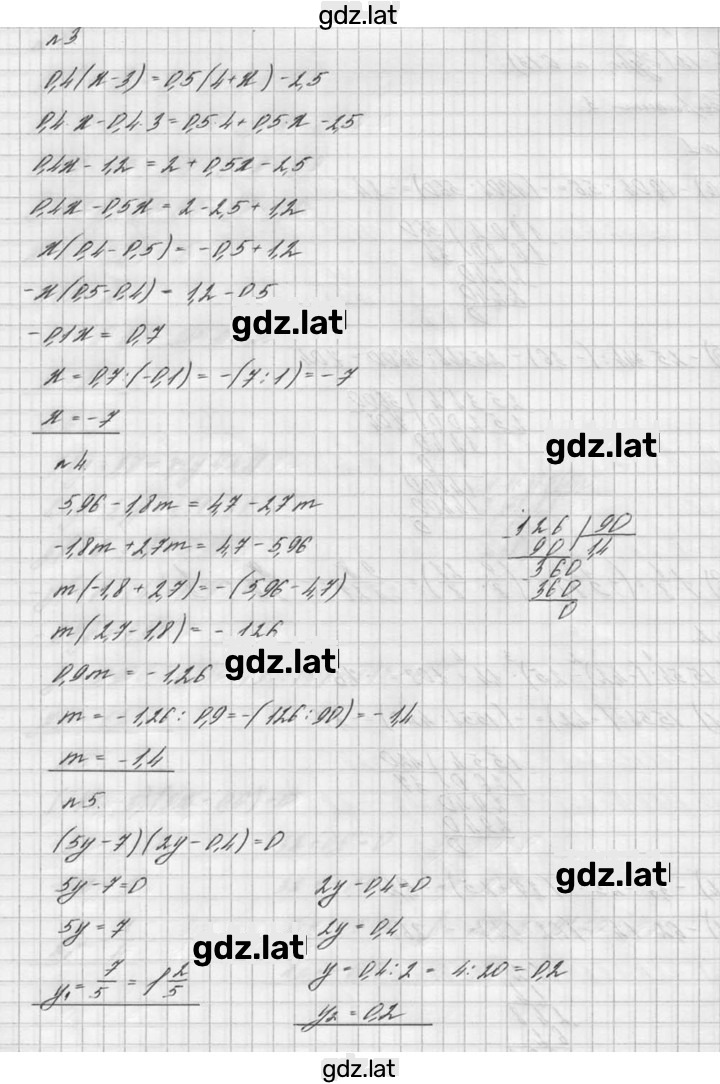 gdz.lat
n3
0,4(x-3)=0,5(4+x)-2,5
0,4·x-0,4·3=0,5·4+0,5·x-2,5
0,4x-1,2=2+0,5x-2,5
0,4x-0,5x=2-2,5+1,2
x(0,4-0,5)=-0,5+1,2
-x(0,5-0,4)=1,2-0,5
-0,1x=0,7
gdz.lat
x=0,7:(-0,1)=-(7:1)=-7
x=-7
gdz.lat
n4.
5,96-1,8m=4,7-2,7m
-1,8m+2,7m=4,7-5,96
m(-1,8+2,7)=-(5,96-4,7)
m(2,7-1,8)=-1,26
0,9m=-1,26
gdz.lat
m=-1,26:0,9=-(126:90)=-1,4
m=-1,4
126 90
90 1,4
360
360
0
n5.
(5y-7)(2y-0,4)=0
5y-7=0
5y=7
gdz.lat
y₁=7/5=1 2/5
2y-0,4=0
gdz.lat
2y=0,4
y=0,4:2=4:20=0,2
y₂=0,2
gdz.lat